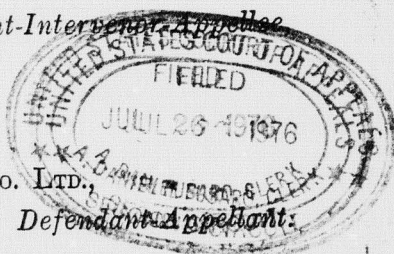 nt-Intervenor-Appellee,
UNITED STATES COURT OF APPEALS
FILED
JUL 26 1976
CLERK
o. LTD.,
Defendant-Appellant.